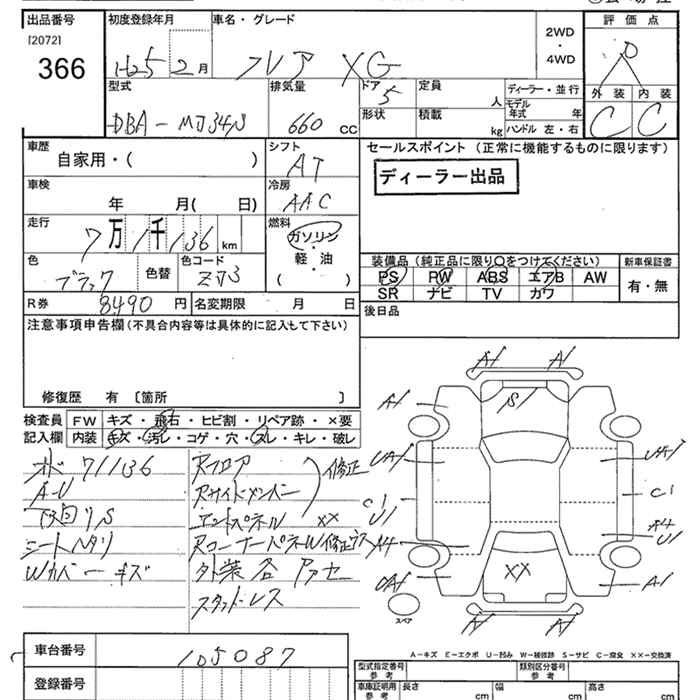 出品番号 初度登録年月 車名・グレード 2WD・4WD 評価点
[2072]
366 H25 2月 フレア XG
型式 排気量 ドア 定員 ディーラー・並行 外装 内装
DBA-MJ34S 660cc 5 人 モデル年式 年 C C
形状 積載 kg ハンドル 左・右
車歴 シフト セールスポイント (正常に機能するものに限ります)
自家用・( ) AT ディーラー出品
車検 冷房
年 月( 日) AAC
走行 燃料
7万1千136km ガソリン
軽・油
( )
色 色替 色コード 装備品 (純正品に限り○をつけてください) 新車保証書
ブラック ZJ3 PS PW ABS エアB AW 有・無
SR ナビ TV カワ
R券 8490円 名変期限 月 日 後日品
注意事項申告欄 (不具合内容等は具体的に記入して下さい)
修復歴 有 〔箇所 〕
検査員 FW キズ・飛石・ヒビ割・リペア跡・×要
記入欄 内装 キズ・汚レ・コゲ・穴・スレ・キレ・破レ
71136 修正
A-U
シートヘタリ
Wカバーキズ
エンドパネル ××
A1 A1
A1 S
UA1 UA1
C1 U1 C1
A4 A4 U1
UA1 ×× A1
A1 A1
スペア
A-キズ E-エクボ U-凹み W-補修跡 S-サビ C-腐食 ××-交換済
車台番号 105087
登録番号
型式指定番号 参考 類別区分番号 参考
車庫証明用 参考 長さ cm 幅 cm 高さ cm